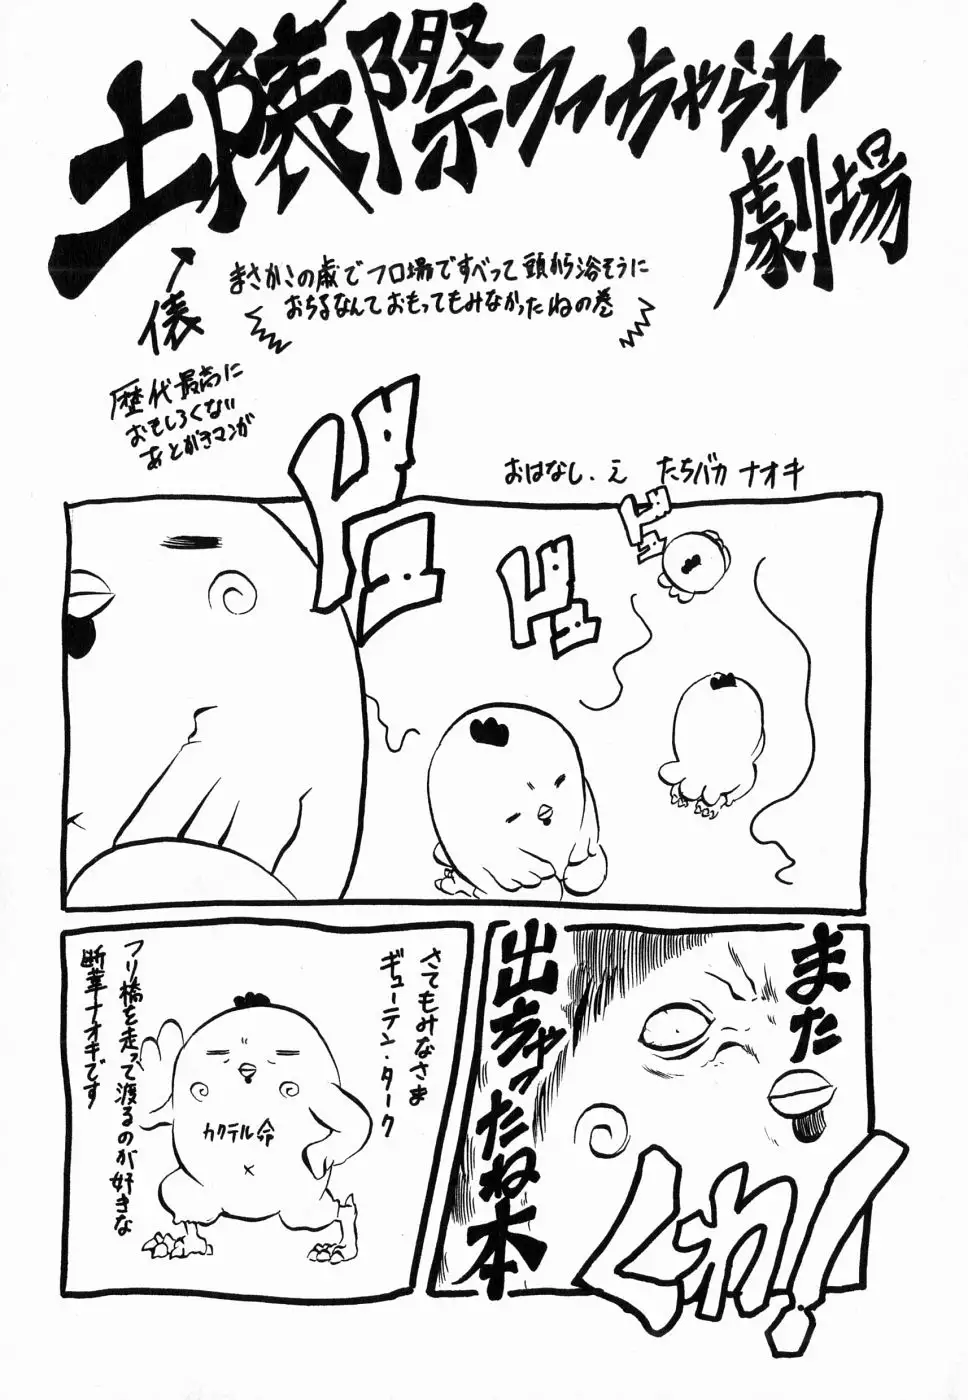 土俵際うっちゃられ
劇場
俵
まさかこの歳でフロ場ですべって頭から浴そうに
おちるなんておもってもみなかったねの巻
歴代最高に
おもしろくない
あとがきマンガ
おはなし.え たちバカ ナオキ
ドドドド
また
出ちゃったね本
くわっ!
さてもみなさま
ギューテン・ターク
フリ橋を走って渡るのが好きな
断華ナオキです
カクテル命